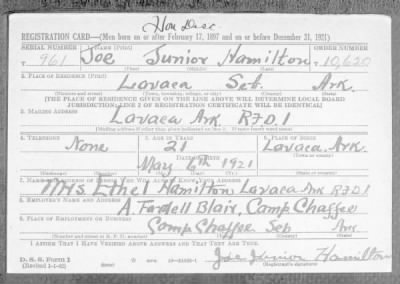 Hon Disc
REGISTRATION CARD—(Men born on or after February 17, 1897 and on or before December 31, 1921)
SERIAL NUMBER 1. NAME (Print) ORDER NUMBER
T 961 Joe Junior Hamilton T 10,620
(First) (Middle) (Last)
2. PLACE OF RESIDENCE (Print)
Lavaca Seb. Ark.
(Number and street) (Town, township, village, or city) (County) (State)
[THE PLACE OF RESIDENCE GIVEN ON THE LINE ABOVE WILL DETERMINE LOCAL BOARD
JURISDICTION; LINE 2 OF REGISTRATION CERTIFICATE WILL BE IDENTICAL]
3. MAILING ADDRESS
Lavaca Ark R.F.D. 1
[Mailing address if other than place indicated on line 2. If same insert word same]
4. TELEPHONE 5. AGE IN YEARS 6. PLACE OF BIRTH
None 21 Lavaca, Ark.
DATE OF BIRTH (Town or county)
May 6th 1921
(Mo.) (Day) (Yr.) (State or country)
7. NAME AND ADDRESS OF PERSON WHO WILL ALWAYS KNOW YOUR ADDRESS
Mrs. Ethel Hamilton Lavaca Ark R.F.D. 1
8. EMPLOYER'S NAME AND ADDRESS
Blair, Camp Chaffee
9. PLACE OF EMPLOYMENT OR BUSINESS
Camp Chaffee Seb Ark
(Number and street or R. F. D. number) (Town) (County) (State)
I AFFIRM THAT I HAVE VERIFIED ABOVE ANSWERS AND THAT THEY ARE TRUE.
D. S. S. Form 1
(Revised 1-1-42) (over) Joe Junior Hamilton
(Registrant's signature)